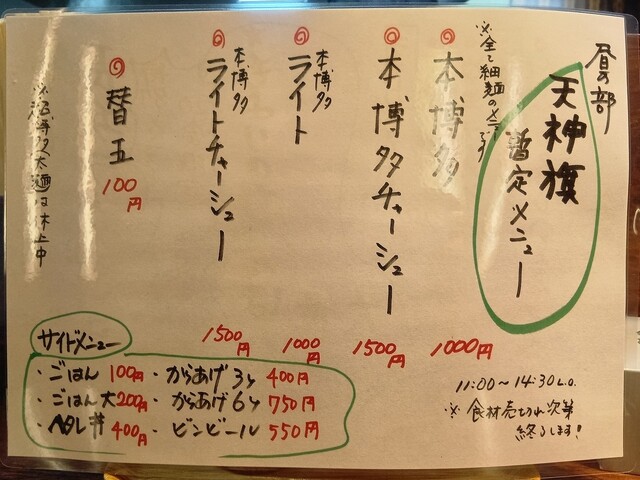 昼の部
天神旗
暫定メニュー
※全て細麺のメニューです
本博多 1000円
本博多チャーシュー 1500円
本博多ライト 1000円
本博多ライトチャーシュー 1500円
替玉 100円
博多太麺は休止中
11:00〜14:30 L.O.
※食材売切れ次第
終了します!
サイドメニュー
・ごはん 100円
・ごはん大 200円
・ヘタレ丼 400円
・からあげ3ヶ 400円
・からあげ6ヶ 750円
・ビンビール 550円